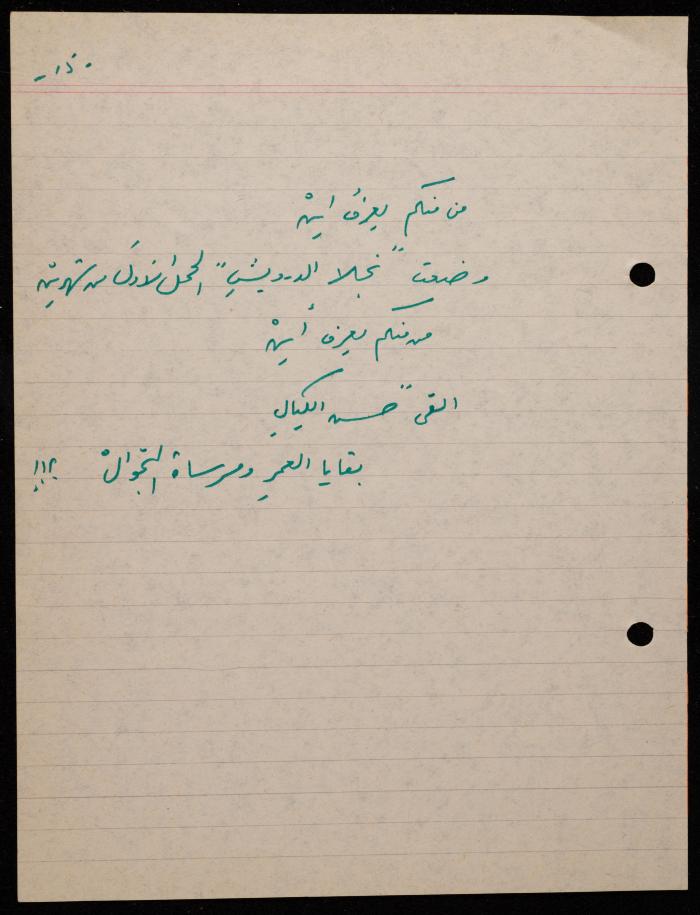 من منكم يعرفُ اينْ
وضعت "نجلا الدرويشِ" الحمل الاولَ من شهرينْ
من منكم يعرف أينْ
القى "حسن الكيالي
بقايا العمرِ ومرساة التجّوالْ ؟!!